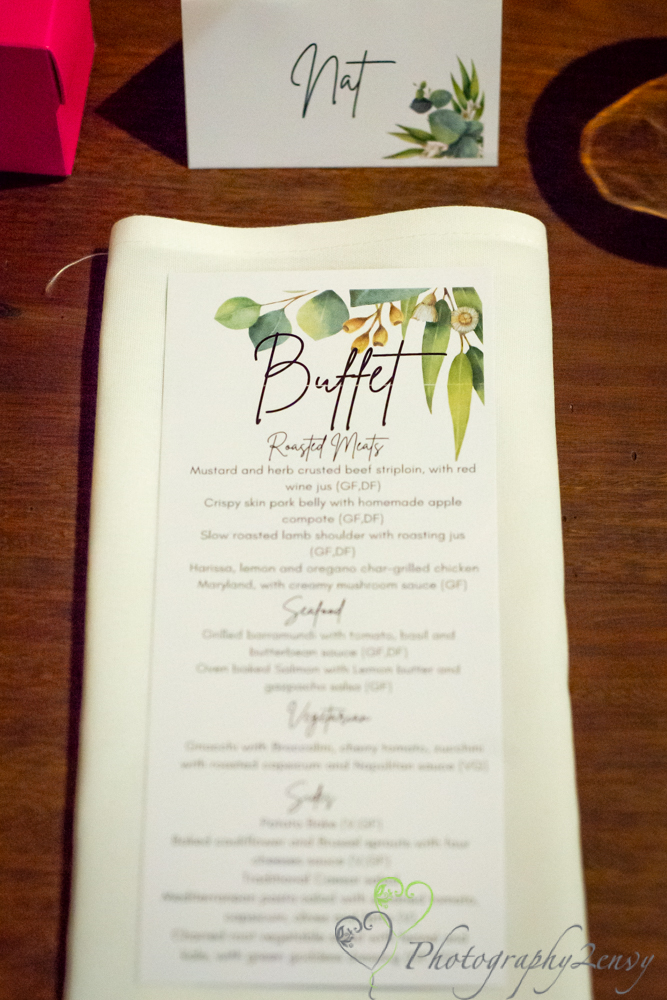 Nat
Buffet
Roasted Meats
Mustard and herb crusted beef striploin, with red
wine jus (GF,DF)
Crispy skin pork belly with homemade apple
compote (GF,DF)
Slow roasted lamb shoulder with roasting jus
(GF,DF)
Harissa, lemon and oregano char-grilled chicken
Maryland, with creamy mushroom sauce (GF)
Seafood
Grilled barramundi with tomato, basil and
butterbean sauce (GF,DF)
Oven baked Salmon with Lemon butter and
gazpacho salsa (GF)
Vegetarian
Gnocchi with Broccolini, cherry tomato, zucchini
with roasted capsicum and Napolitan sauce (VG)
Sides
Potato Bake (V,GF)
Baked cauliflower and Brussel sprouts with four
cheeses sauce (V,GF)
Traditional Caesar
Mediterranean pasta salad with tomato,
capsicum, olives
Charred root vegetable
with green
Photography2envy